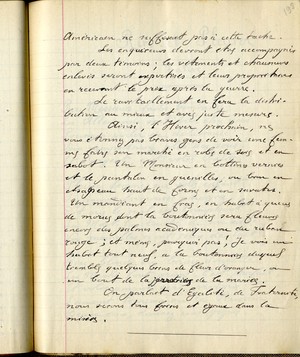 Américain ne suffisent pas à cette tâche.
Les enquêteurs devront être accompagnés
par deux témoins; les vêtements et chaussures
enlevés seront expertisés et leurs propriétaires
en recevront le prix après la guerre.
Le ravitaillement en fera la distri-
bution au mieux et avec juste mesure.
Ainsi, l'Hiver prochain, ne
vous étonnez pas braves gens de voir une fem-
me faire son marché en robe de soie et en
sabots. Un Monsieur en bottines vernies
et le pantalon en guenilles, ou bien en
chapeau haut de forme et en savates.
Un mendiant en frac, en habit à queue
de morue dont la boutonnière sera fleurie
encore des palmes académiques ou du ruban
rouge; et même, pourquoi pas! Je vois un
habit tout neuf, a la boutonnière duquel
tremble quelques brins de fleur d'oranger, a
un bout de la de la mariée.
On parlait d'Egalité, de Fraternité
nous serons tous frères et égaux dans la
misère.